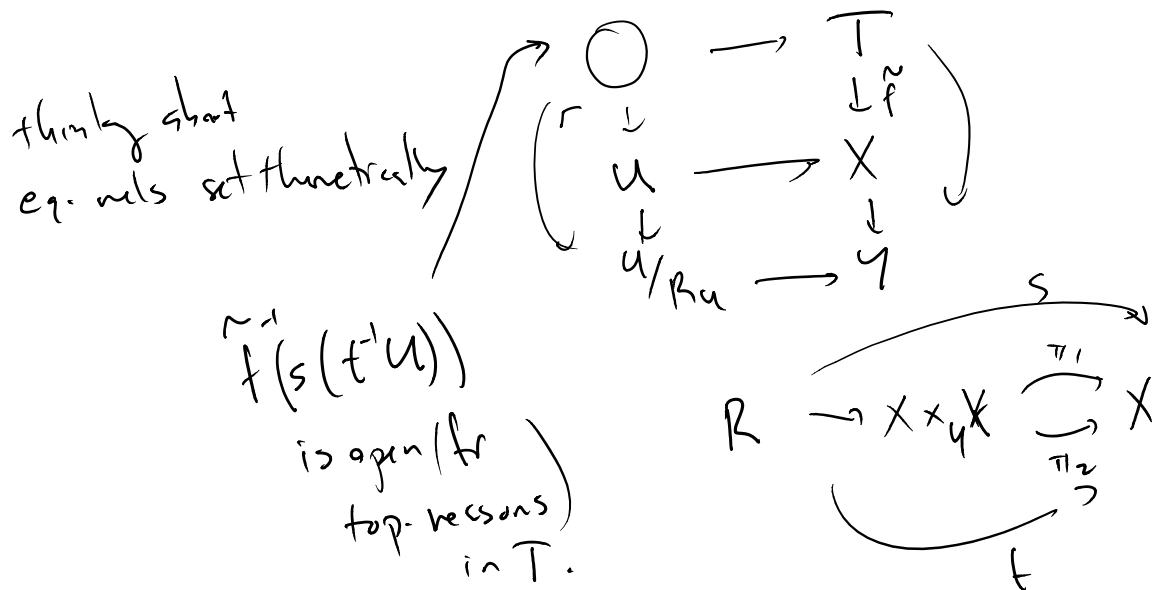 thinking about
eq. rels set theoretically
T
r
↓
↓ f̃
U → X
↓
↓
U/R_U → Y
f̃⁻¹(s(t⁻¹U))
is open (for
top. reasons)
in T.
s
R → X ×_Y X
π1
X
π2
t